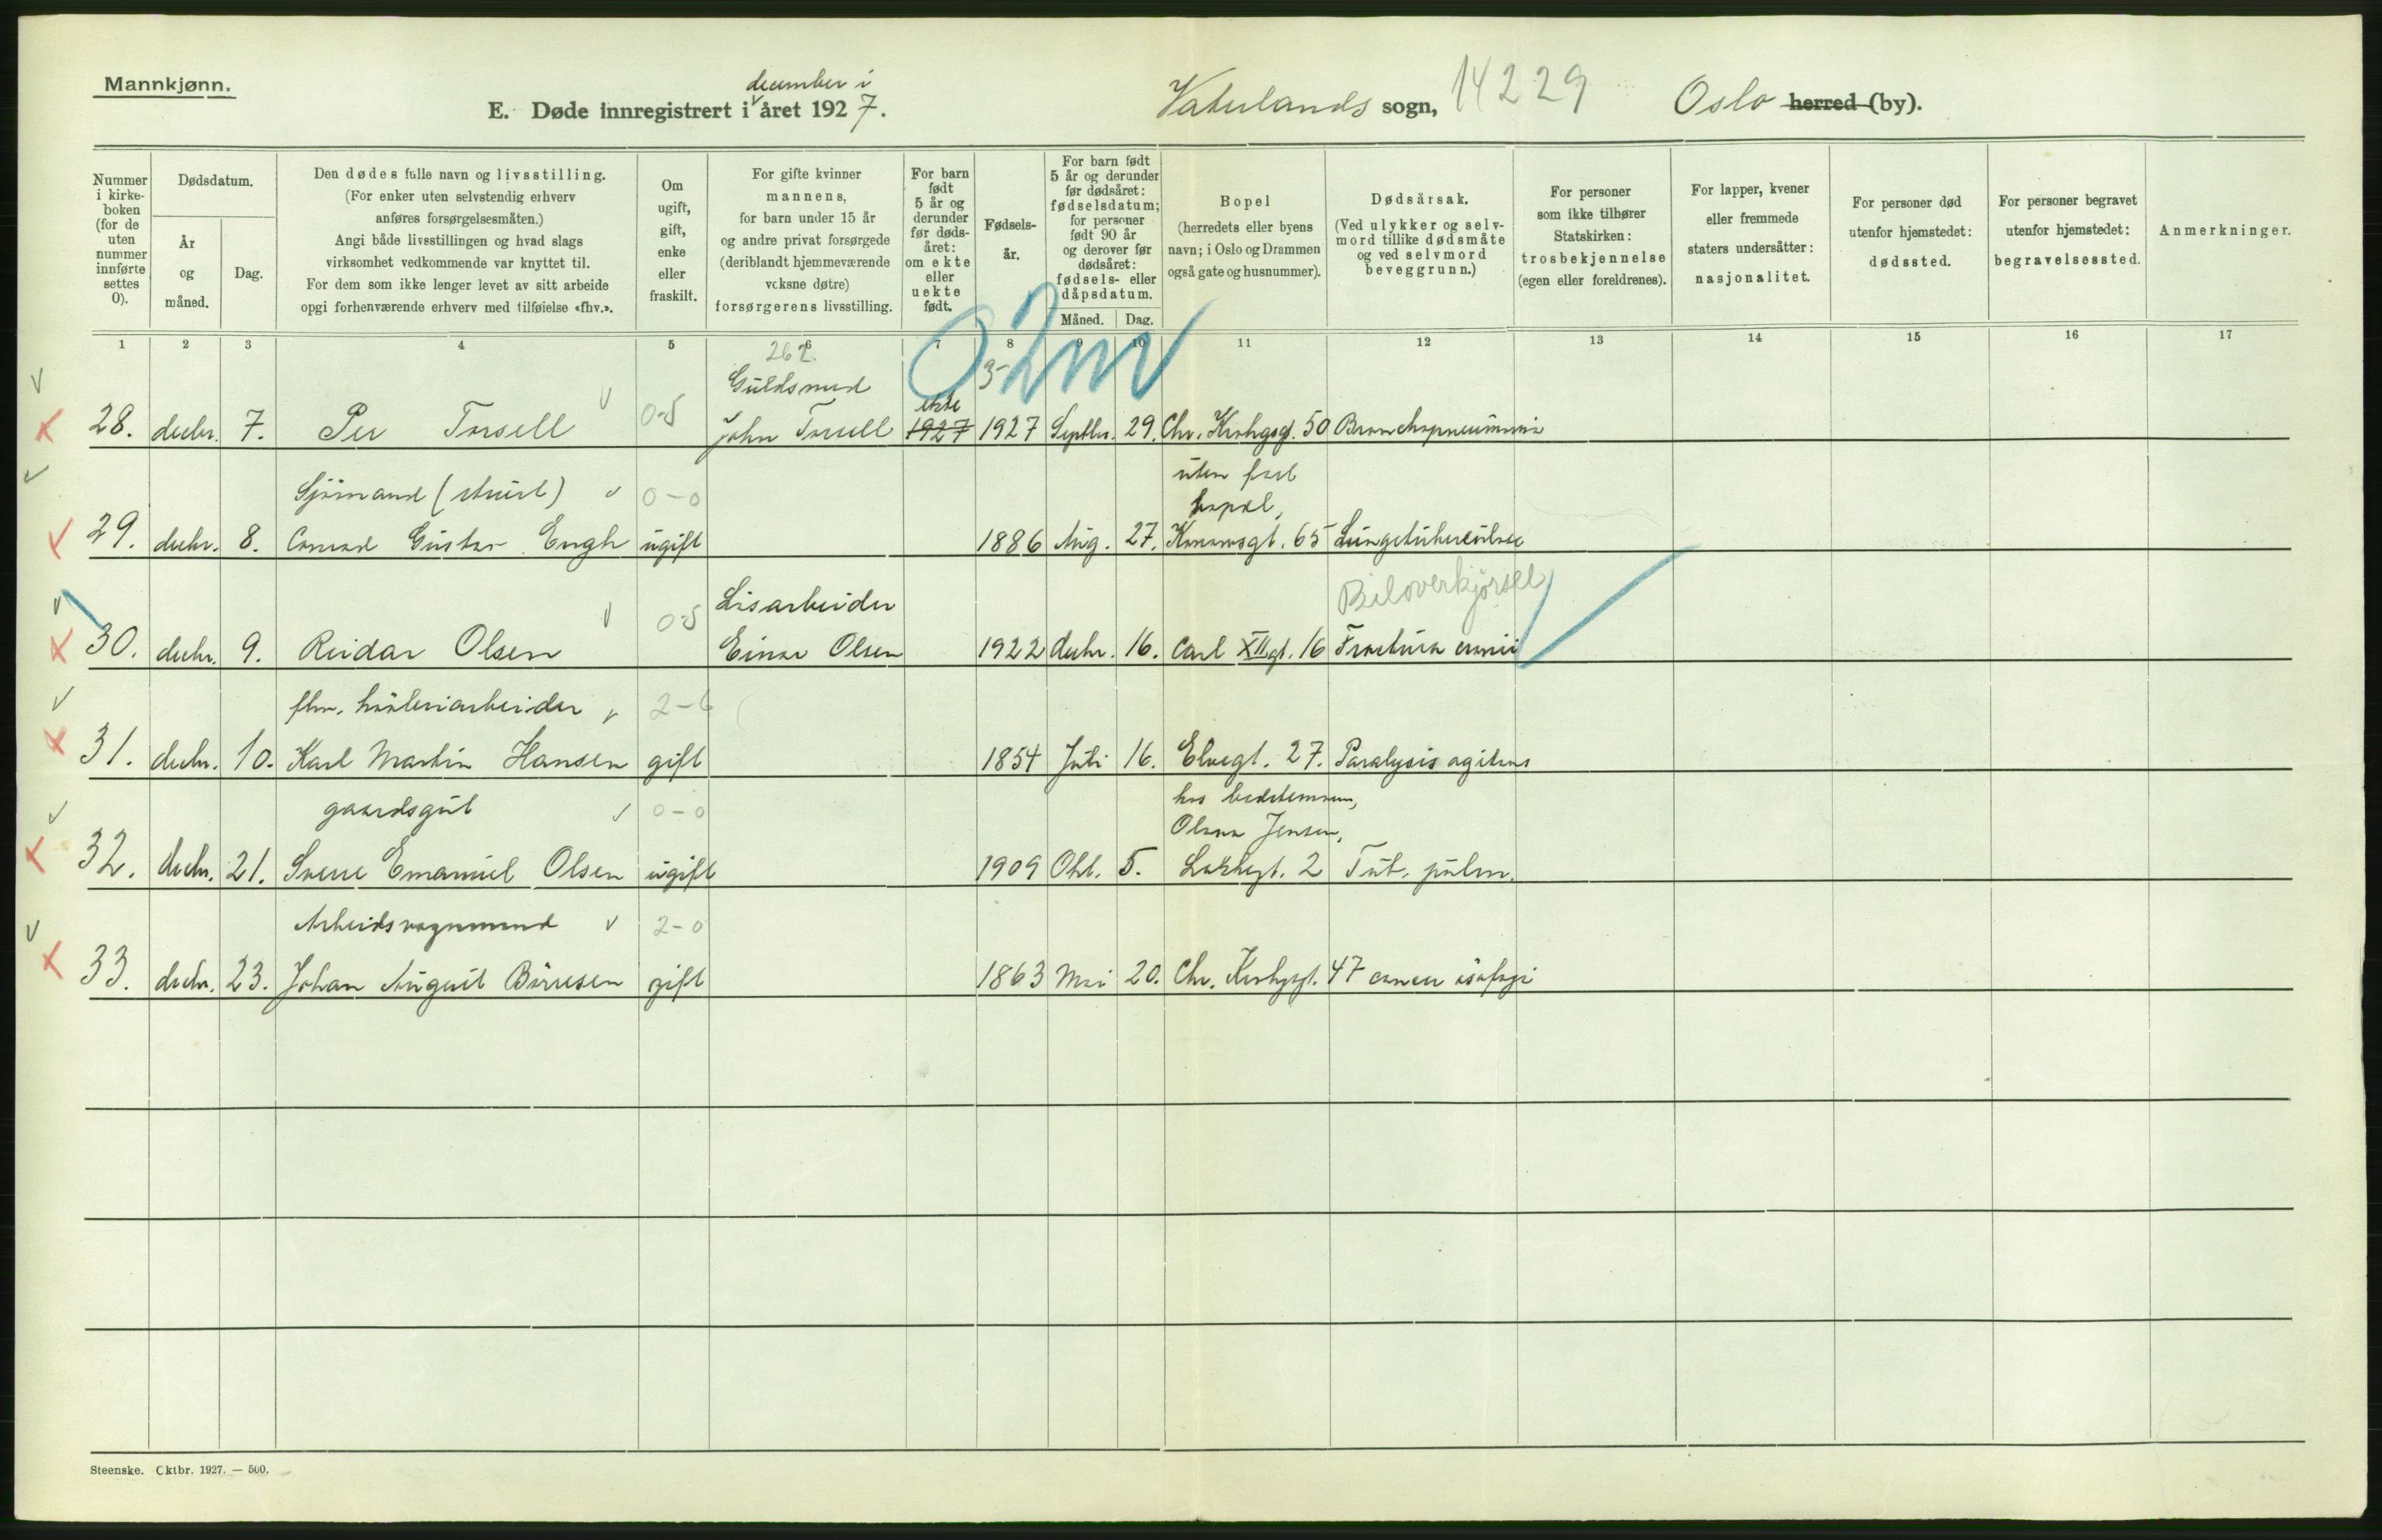 Mannkjønn.
december i
E. Døde innregistrert i året 1927.
Vaterlands sogn, 14229 Oslo herred (by).
Nummer i kirke-boken (for de uten nummer innførte settes 0).
Dødsdatum.
År og måned.
Dag.
Den dødes fulle navn og livsstilling.
(For enker uten selvstendig erhverv
anføres forsørgelsesmåten.)
Angi både livsstillingen og hvad slags
virksomhet vedkommende var knyttet til.
For dem som ikke lenger levet av sitt arbeide
opgi forhenværende erhverv med tilføielse «fhv.».
Om ugift, gift, enke eller fraskilt.
For gifte kvinner
mannens,
for barn under 15 år
og andre privat forsørgede
(deriblandt hjemmeværende
voksne døtre)
forsørgerens livsstilling.
For barn født 5 år og derunder før døds-året: om ekte eller uekte født.
Fødsels-år.
For barn født
5 år og derunder
før dødsåret:
fødselsdatum;
for personer
født 90 år
og derover før
dødsåret:
fødsels- eller
dåpsdatum.
Måned. Dag.
Bopel
(herredets eller byens
navn; i Oslo og Drammen
også gate og husnummer).
Dødsårsak.
(Ved ulykker og selv-
mord tillike dødsmåte
og ved selvmord
beveggrunn.)
For personer
som ikke tilhører
Statskirken:
trosbekjennelse
(egen eller foreldrenes).
For lapper, kvener
eller fremmede
staters undersåtter:
nasjonalitet.
For personer død
utenfor hjemstedet:
dødssted.
For personer begravet
utenfor hjemstedet:
begravelsessted.
Anmerkninger.
1 2 3 4 5 6 7 8 9 10 11 12 13 14 15 16 17
262.
Guldsmed
ekte
28. decbr. 7. Per Torsell 0-5 John Torsell 1927 1927 Septbr. 29. Chr. Krohgsgt. 50 Bronchopneumonia
uten fast
bopæl,
Sjömand ( ) 0-0
29. decbr. 8. Conrad Gustav Engh ugift 1886 Aug. 27. 65 Lungetuberculose
Biloverkjørsel
Lisarbeider
30. decbr. 9. Reidar Olsen 0-5 Einar Olsen 1922 decbr. 16. Carl XII gt. 16 Fractura cranii
fhv. 2-6
31. decbr. 10. Karl Martin Hansen gift 1854 Juli 16. Elvegt. 27. Paralysis agitans
hos bedstemoren,
gaardsgut 0-0 Jensen,
32. decbr. 21. Sverre Emanuel Olsen ugift 1909 Okt. 5. Lakkegt. 2 Tub. pulm.
Arbeidsvognmand 2-0
33. decbr. 23. Johan August Börresen gift 1863 Mai 20. Chr. Krohgsgt. 47 cancer øsofagi
Steenske. Oktbr. 1927. — 500.